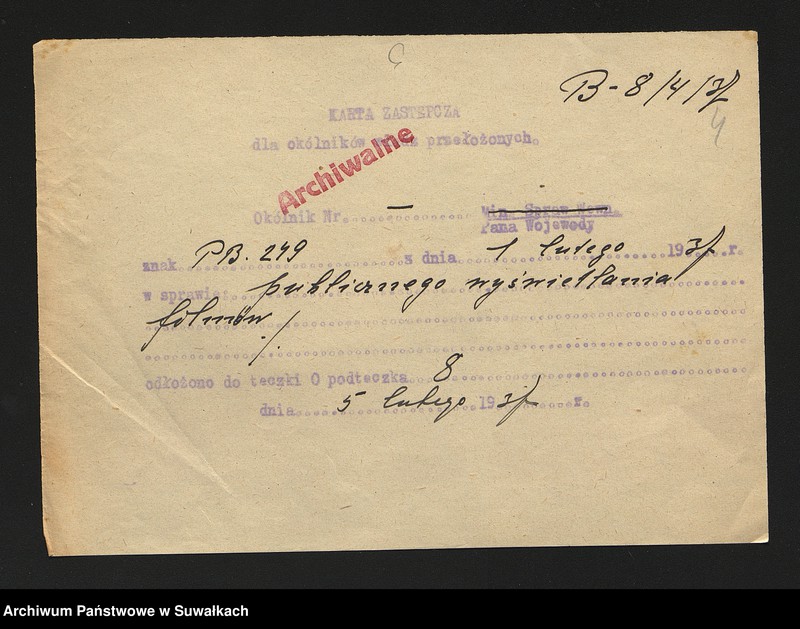 B-8/4/37
4
KARTA ZASTĘPCZA
dla okólników przełożonych.
Archiwalne
Okólnik Nr. — Min. Spraw Wewn.
Pana Wojewody
znak PB. 249 z dnia 1 lutego 1937 r.
w sprawie: publicznego wyświetlania
filmów./
odłożono do teczki O podteczka 8
dnia 5 lutego 1937 r.
Archiwum Państwowe w Suwałkach